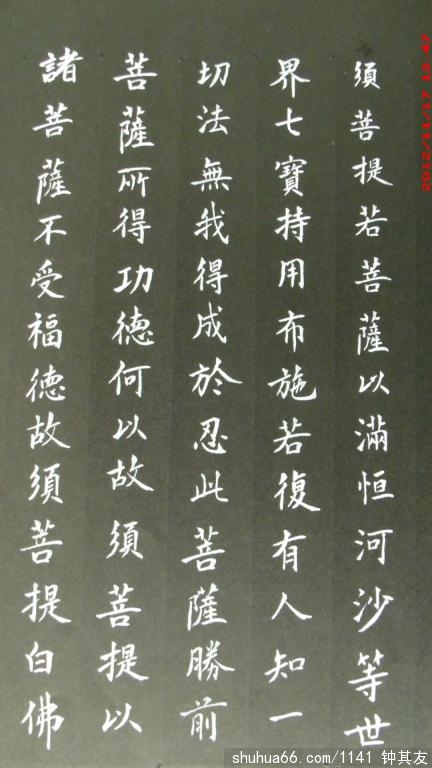 須菩提若菩薩以滿恒河沙等世
界七寶持用布施若復有人知一
切法無我得成於忍此菩薩勝前
菩薩所得功德何以故須菩提以
諸菩薩不受福德故須菩提白佛
2012/11/17
shuhua66.com/1141 钟其友